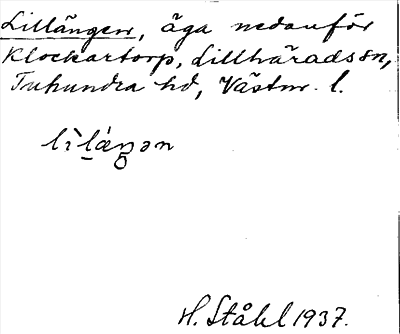 Lillängen, äga nedanför
Klockartorp, Lillhärads sn,
Tuhundra hd, Västm. l.
H. Ståhl 1937.